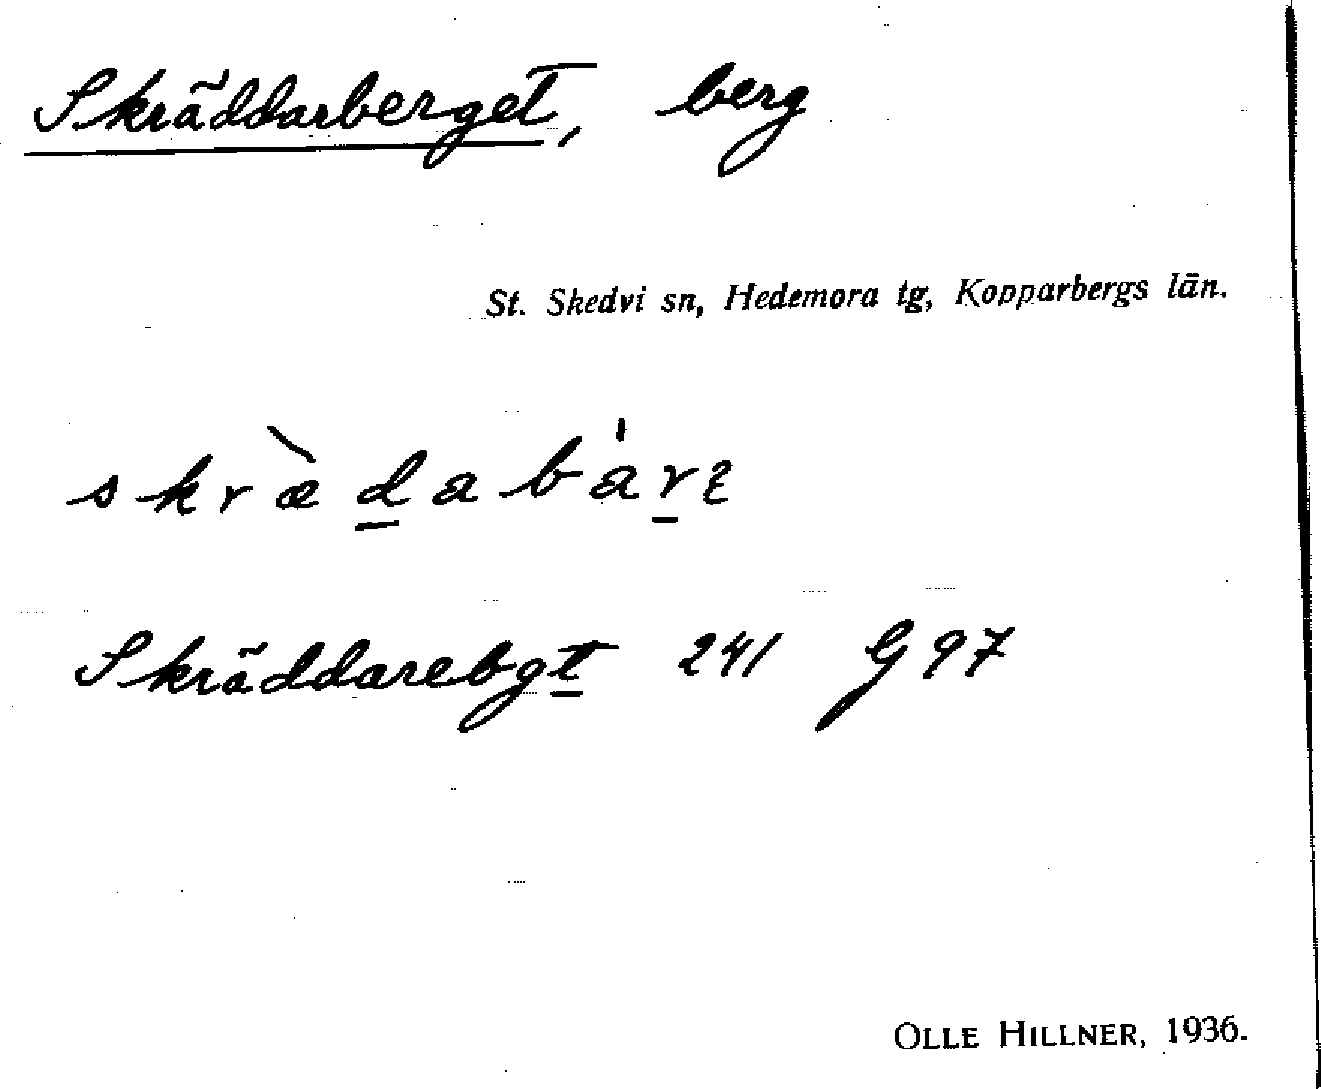 Skräddarberget, berg
St. Skedvi sn, Hedemora tg, Kopparbergs län.
skræ̀d̲abár̲ε
Skräddarebgt 241 G 97
OLLE HILLNER, 1936.